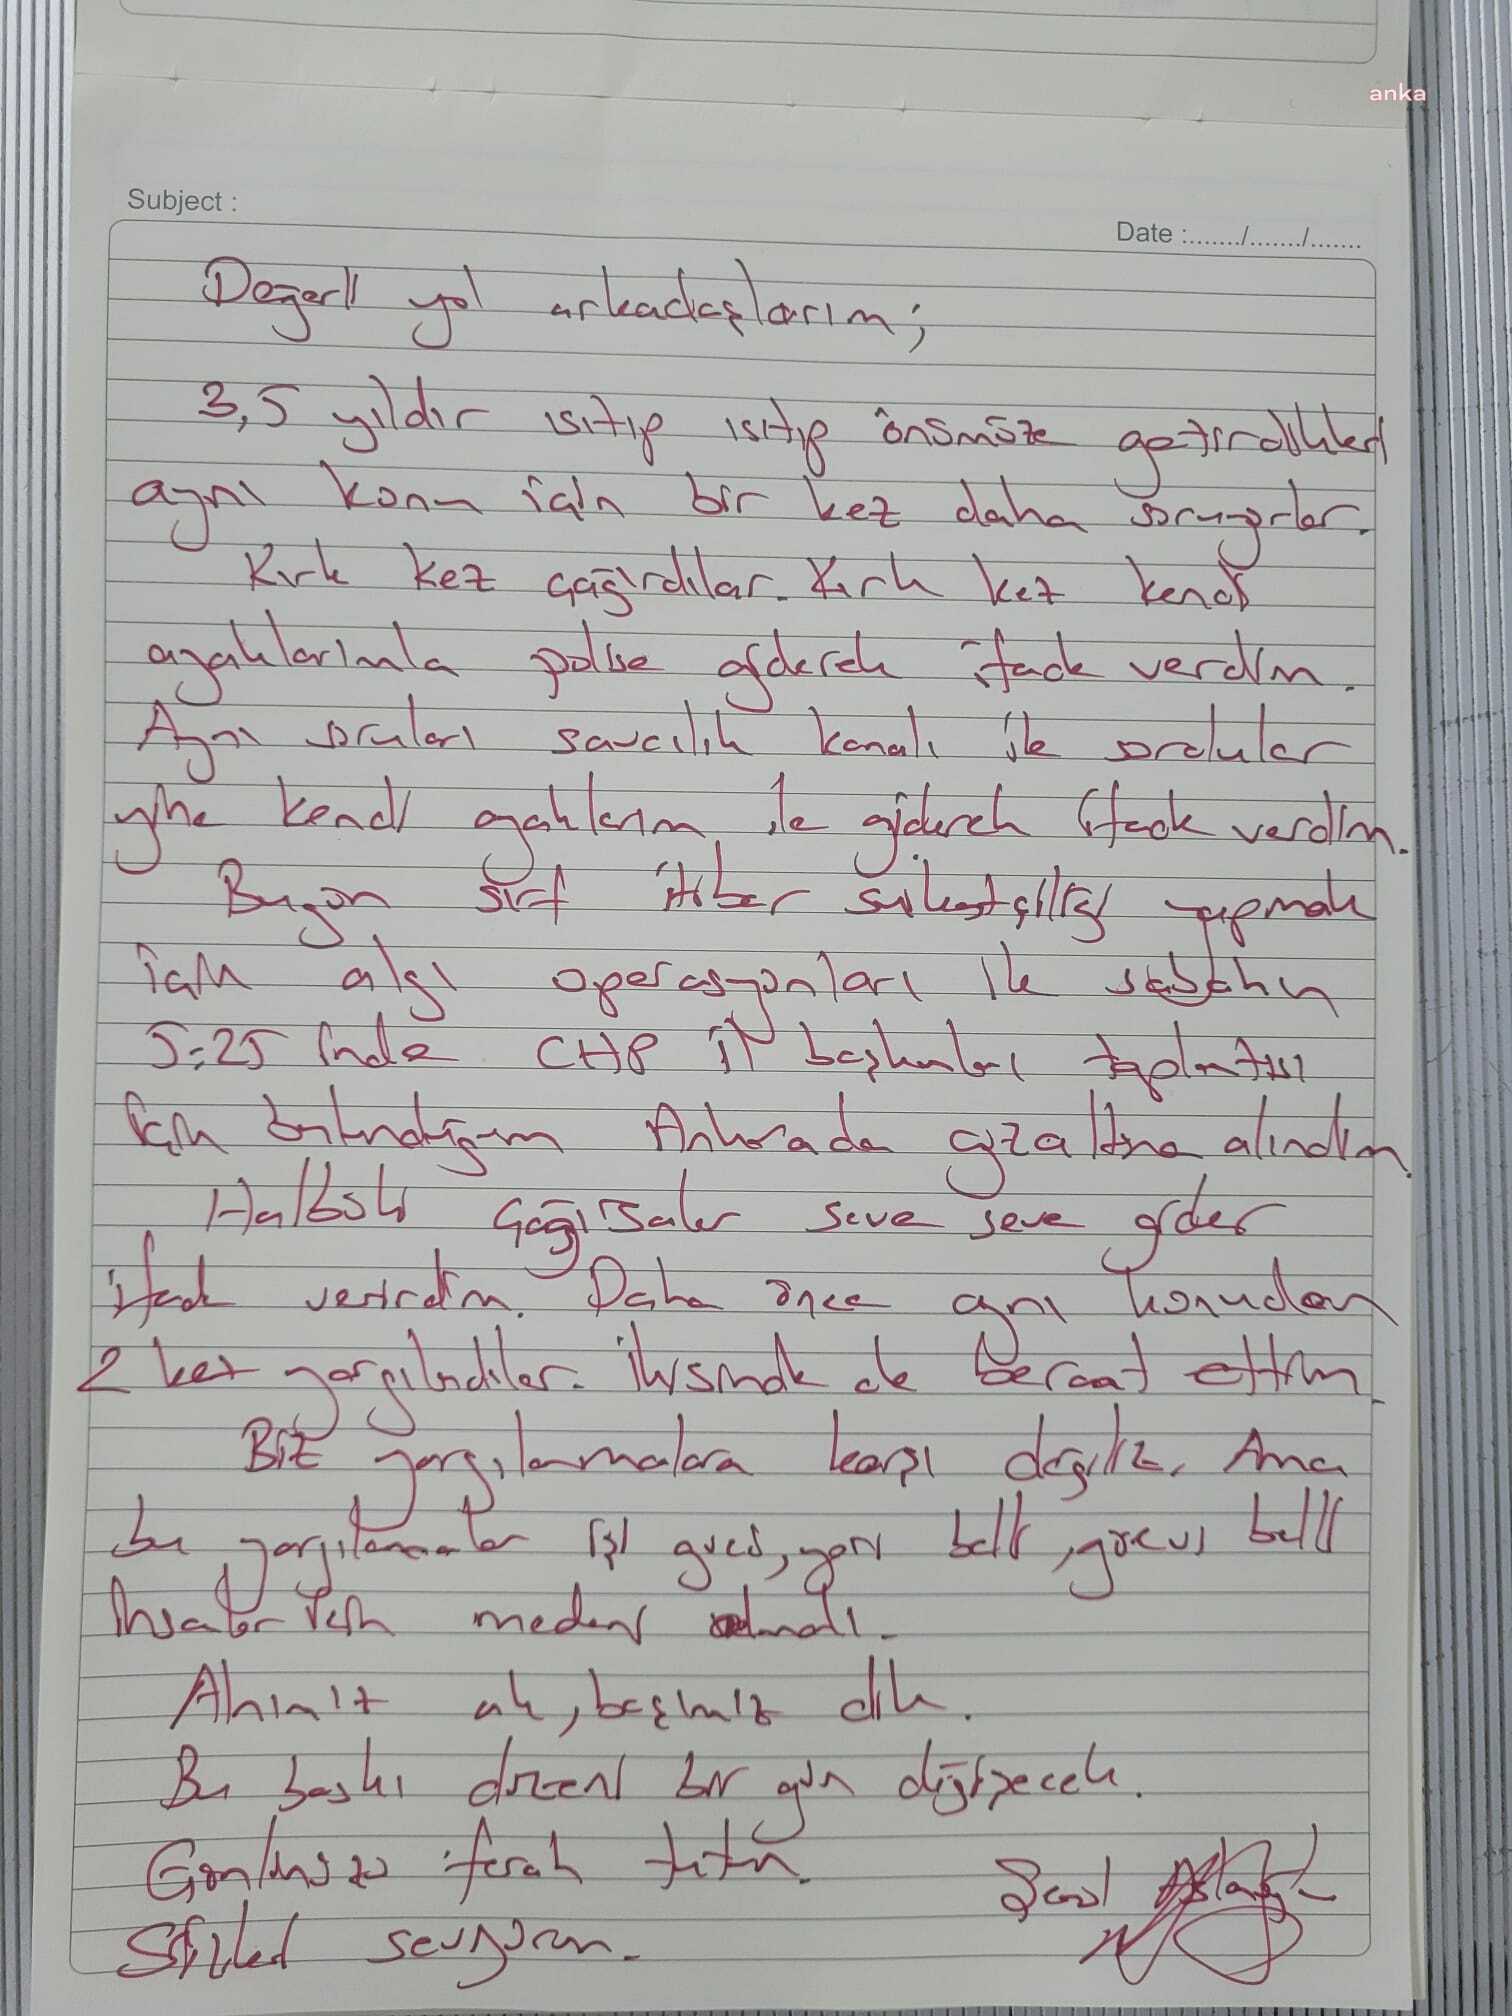 anka
Subject :
Date :......./......./.......
Değerli yol arkadaşlarım;
3,5 yıldır ısıtıp ısıtıp önümüze getirdikleri
aynı konu için bir kez daha soruyorlar.
Kırk kez çağırdılar. Kırk kez kendi
ayaklarımla polise giderek ifade verdim.
Aynı soruları savcılık kanalı ile sordular
yine kendi ayaklarım ile giderek ifade verdim.
Bugün sırf itibar suikastçiliği yapmak
için algı operasyonları ile sabahın
5:25 inde CHP il başkanları toplantısı
için bulunduğum Ankarada gözaltına alındım.
Halbuki çağırsalar seve seve gider
ifade verirdim. Daha önce aynı konudan
2 kez yargıladılar. İkisinde de beraat ettim.
Biz yargılanmalara karşı değiliz. Ama
bu yargılanmalar işi gücü, yeri belli, görevi belli
insanlar için medeni olmalı.
Alnımız ak, başımız dik.
Bu baskı düzeni bir gün değişecek.
Gönlünüzü ferah tutun.
Sizleri seviyorum.
Şenol Aslanoğlu